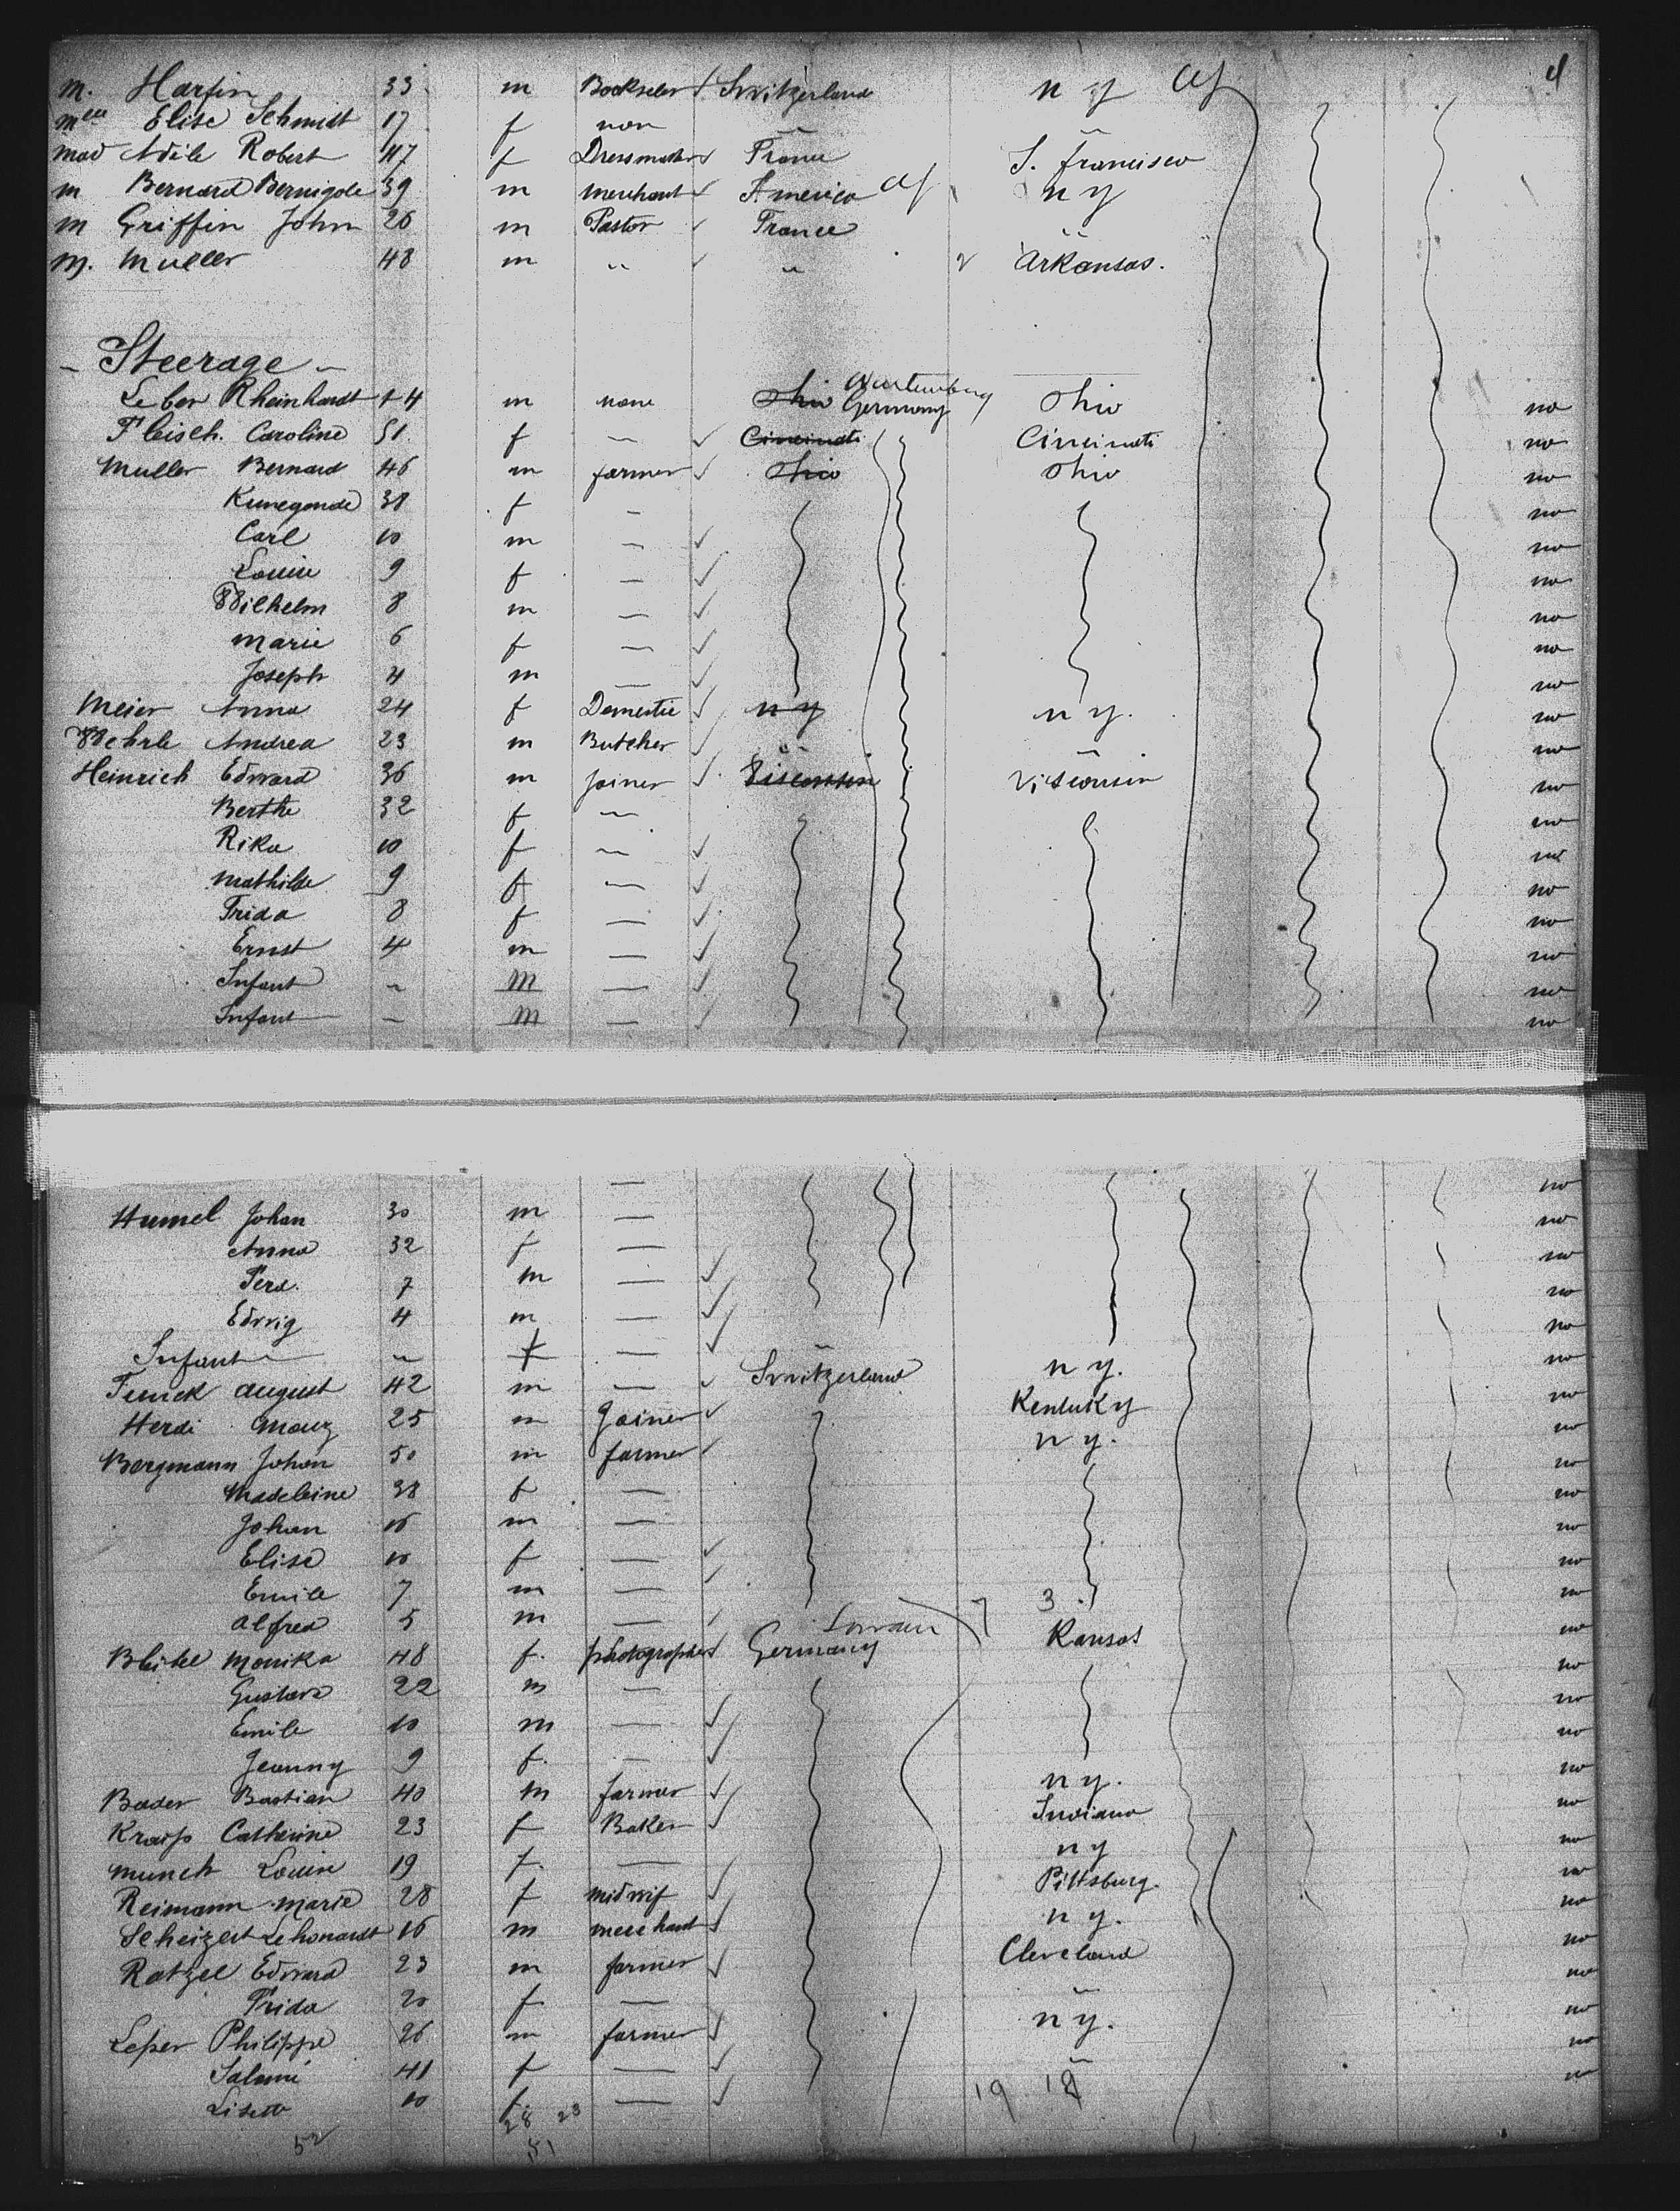 4
M. Harfin 33 m Bookseler Switzerland n y
Mell Elise Schmidt 17 f non "
Mad Adile Robert 47 f Dressmaker France S. francisco
M Bernard Bernigole 39 m merchant America n y
M Griffin John 26 m Pastor France "
M. Muller 48 m " " Arkansas.
- Steerage -
Wurtemberg
Leber Rheinhardt 14 m none Ohio Germany Ohio no
Fleisch. Caroline 51. f — Cincinati Cincinati no
Muller Bernard 46 m farmer Ohio Ohio no
Kunegonde 38 f - no
Carl 10 m — no
Louise 9 f — no
Wilhelm 8 m — no
Marie 6 f — no
Joseph 4 m — no
Meier Anna 24 f Domestic n y n y. no
Wehrle Andrea 23 m Butcher " " no
Heinrich Edward 36 m joiner Visconsin Visconsin no
Berthe 32 f — no
Rika 10 f — no
Mathilde 9 f — no
Frida 8 f — no
Ernst 4 m — no
Infant - M — no
Infant - M — no
— no
Humel Johan 30 m — no
Anna 32 f — no
Ferd. 7 m — no
Edwig 4 m — no
Infant - f — " no
August 42 m — Switzerland n y. no
Herdi 25 m Joiner Kentuky no
Bergmann Johan 50 m farmer n y. no
Madeleine 38 f — no
Johan 16 m — no
Elise 10 f — no
Emile 7 m — 3 no
Alfred 5 m — no
Monika 48 f. photographer Germany Kansas no
Gustave 22 m — no
Emile 10 m — no
Jeanny 9 f. — no
Bader Bastian 40 m farmer n y. no
Krauss Catherine 23 f Baker Indiana no
Munch Louise 19 f. — n y no
Reimann Marie 28 f midwif Pittsburg. no
Scheizert Lehonardt 16 m merchant n y. no
Ratzel Edward 23 m farmer Cleveland no
Frida 20 f — " no
Leser Philippe 26 m farmer n y. no
Salomé 41 f — " no
Lisette 10 f. — 19 18
28 23
52 51